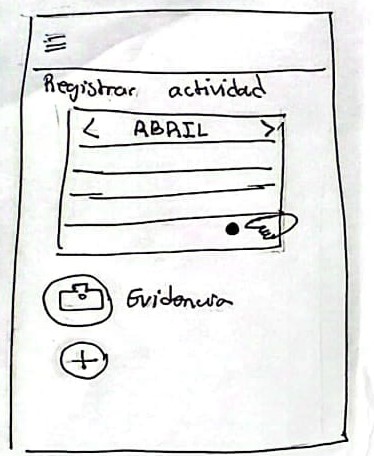 Registrar actividad
< ABRIL >
Evidencia
+